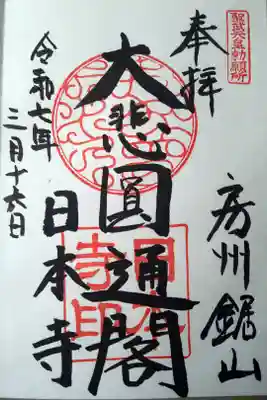 聖武天皇勅願所
奉拝
房州鋸山
大悲圓通閣
日本寺
令和七年
三月十六日